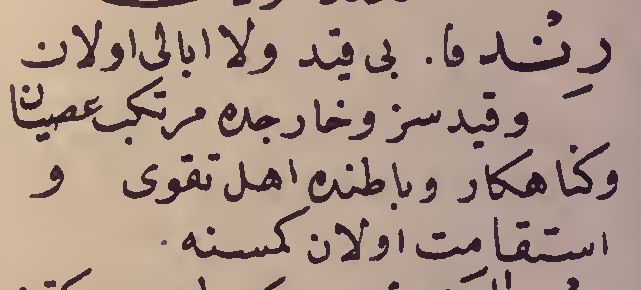 رِنْد فا. بى قيد ولا ابالى اولان
وقيدسز وخارجده مرتكب عصيان
وكناهكار وباطنده اهل تقوى و
استقامت اولان كمسنه.